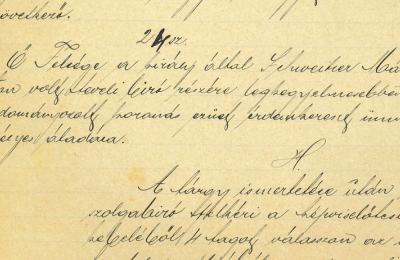 következő.
24 sz.
Ő Felsége a király által Schweitzer Má
volt Heveli biró részére legkegyelmesebben
dományozott koronás ezüst érdemkereszt ünne
pélyes átadása.
H.
A tárgy ismertetése után
szolgabiró felkéri a képviselőtes
kebeléből 4 tagot válasszon az